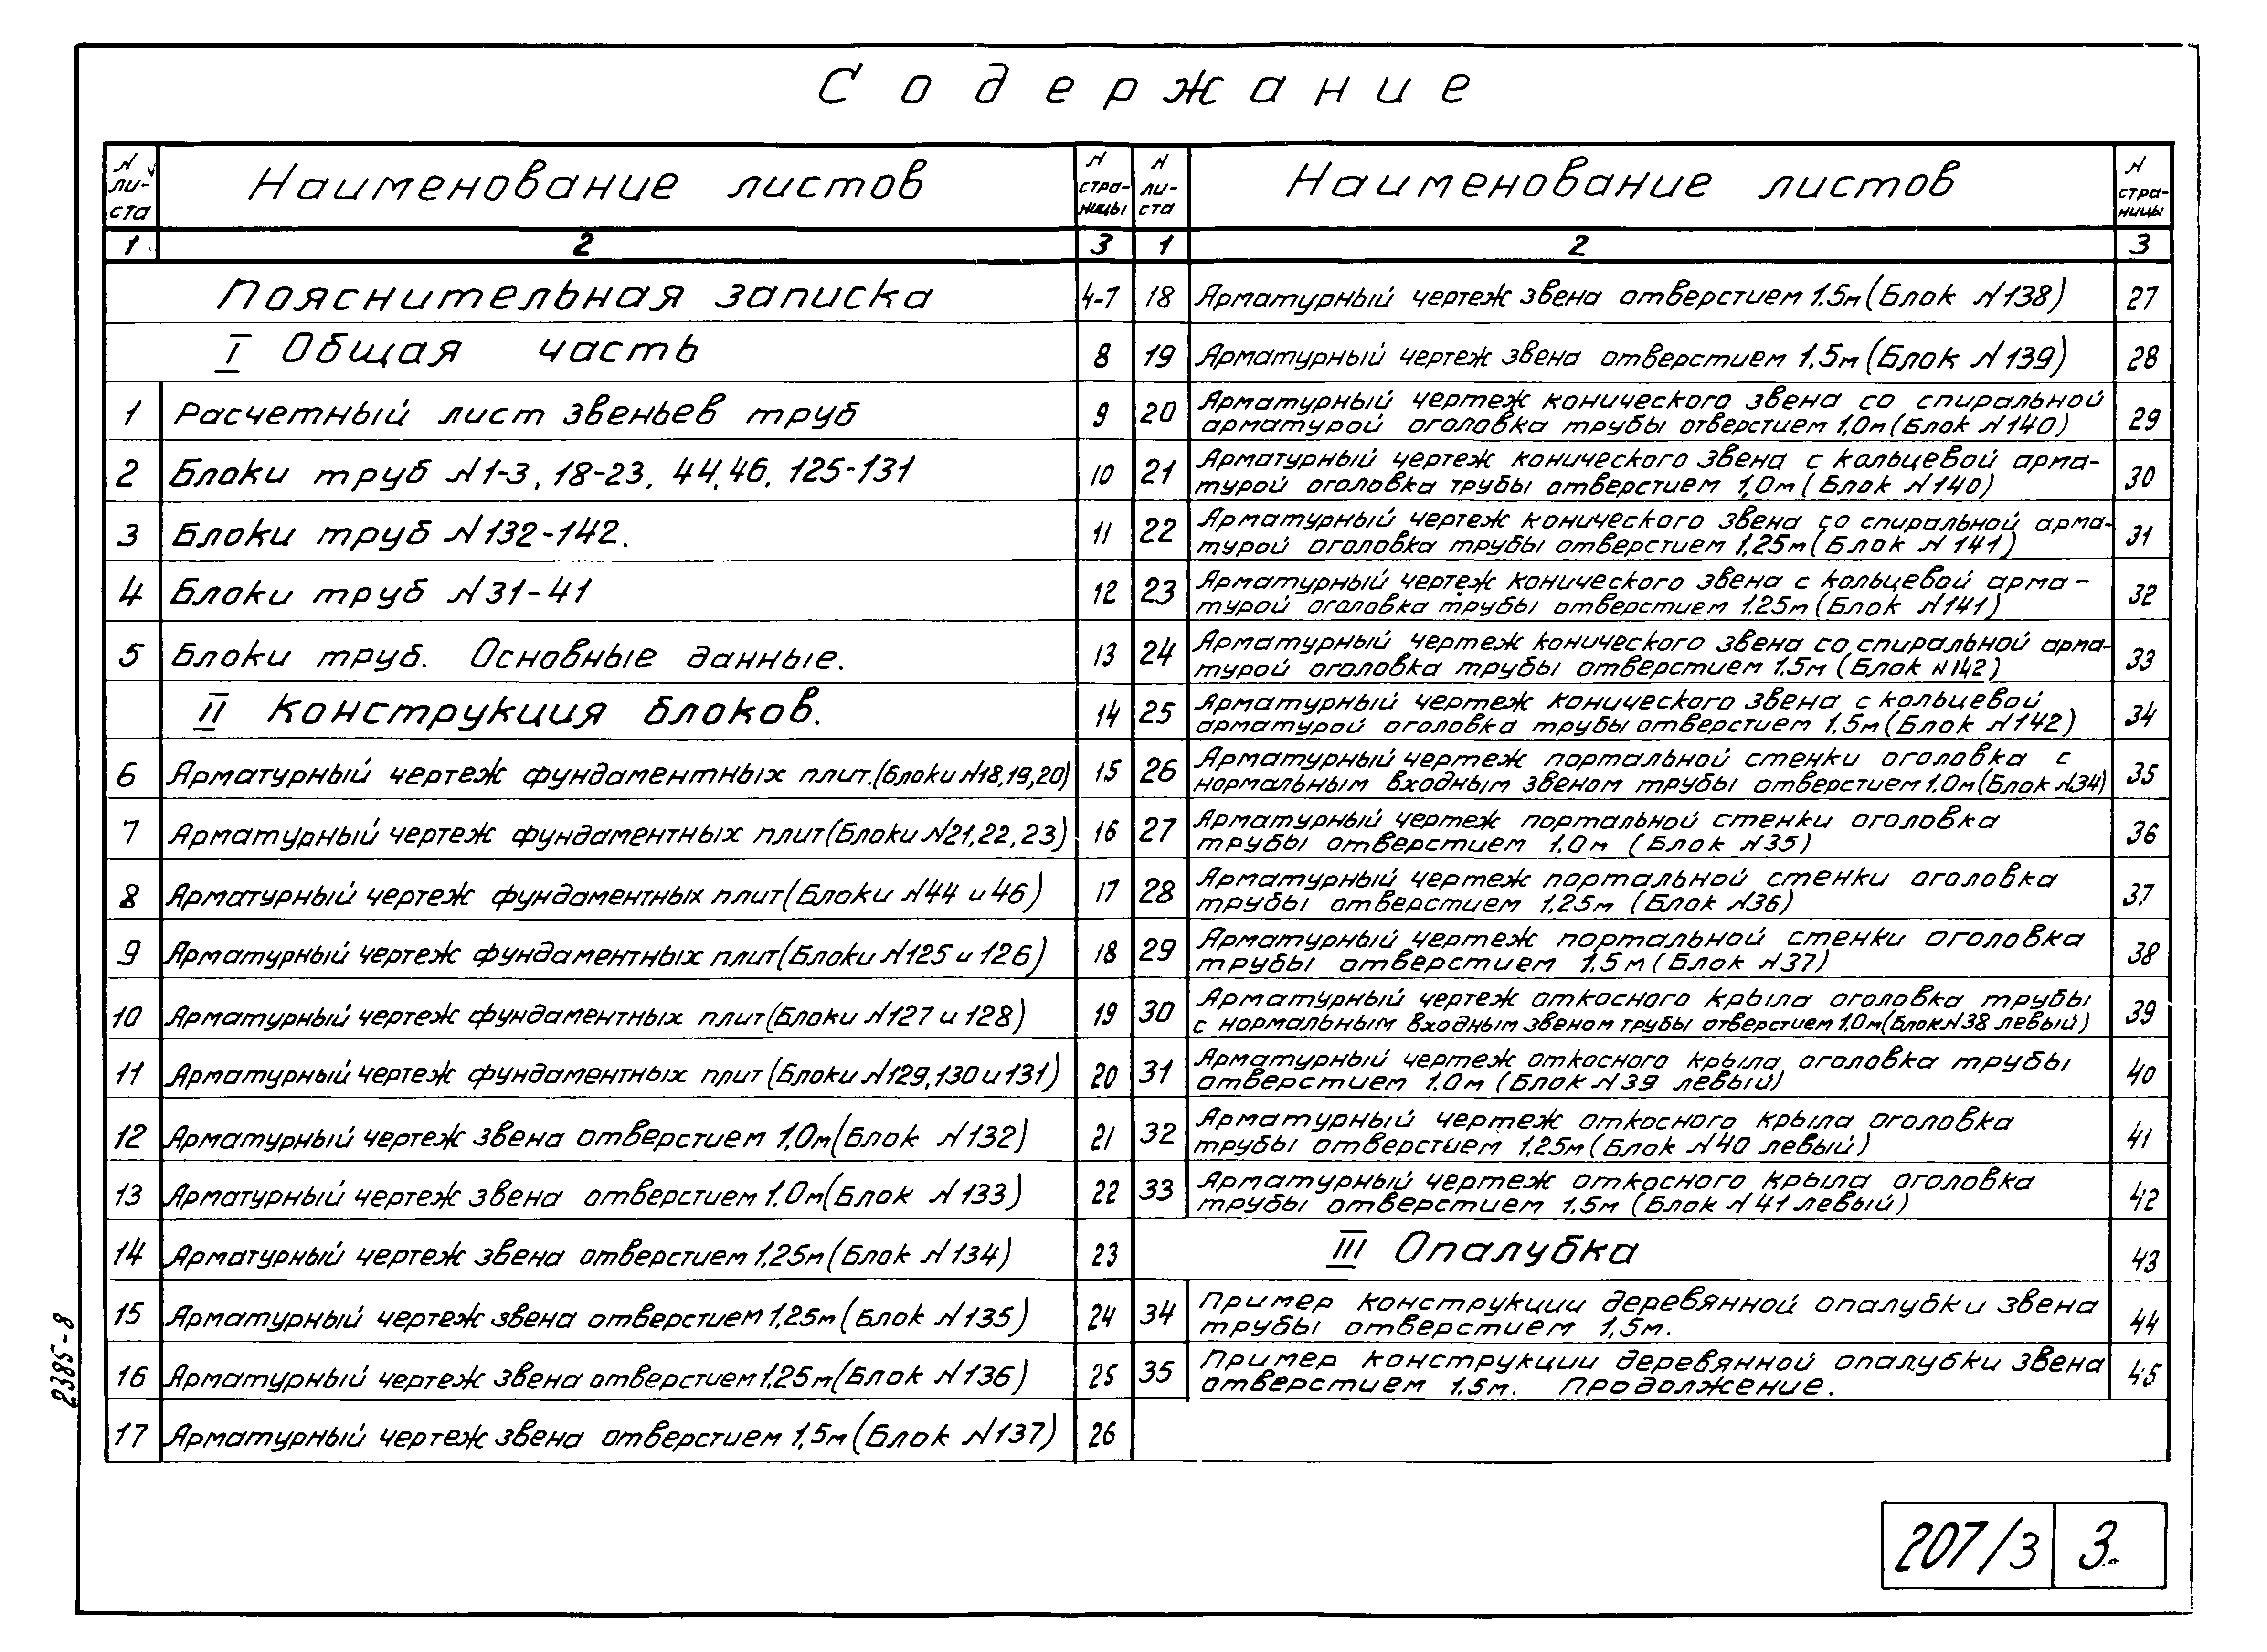 Содержание
N листа Наименование листов N страницы
1 2 3
Пояснительная записка 4-7
I Общая часть 8
1 Расчетный лист звеньев труб 9
2 Блоки труб N1-3, 18-23, 44,46, 125-131 10
3 Блоки труб N132-142. 11
4 Блоки труб N31-41 12
5 Блоки труб. Основные данные. 13
II Конструкция блоков. 14
6 Арматурный чертеж фундаментных плит.(Блоки N18,19,20) 15
7 Арматурный чертеж фундаментных плит(Блоки N21,22,23) 16
8 Арматурный чертеж фундаментных плит(Блоки N44 и 46) 17
9 Арматурный чертеж фундаментных плит(Блоки N125 и 126) 18
10 Арматурный чертеж фундаментных плит(Блоки N127 и 128) 19
11 Арматурный чертеж фундаментных плит(Блоки N129,130 и 131) 20
12 Арматурный чертеж звена отверстием 1,0м(Блок N132) 21
13 Арматурный чертеж звена отверстием 1,0м(Блок N133) 22
14 Арматурный чертеж звена отверстием 1,25м(Блок N134) 23
15 Арматурный чертеж звена отверстием 1,25м(Блок N135) 24
16 Арматурный чертеж звена отверстием 1,25м(Блок N136) 25
17 Арматурный чертеж звена отверстием 1,5м(Блок N137) 26
N листа Наименование листов N страницы
1 2 3
18 Арматурный чертеж звена отверстием 1,5м(Блок N138) 27
19 Арматурный чертеж звена отверстием 1,5м(Блок N139) 28
20 Арматурный чертеж конического звена со спиральной
арматурой оголовка трубы отверстием 1,0м(Блок N140) 29
21 Арматурный чертеж конического звена с кольцевой арма-
турой оголовка трубы отверстием 1,0м(Блок N140) 30
22 Арматурный чертеж конического звена со спиральной арма-
турой оголовка трубы отверстием 1,25м(Блок N141) 31
23 Арматурный чертеж конического звена с кольцевой арма-
турой оголовка трубы отверстием 1,25м(Блок N141) 32
24 Арматурный чертеж конического звена со спиральной арма-
турой оголовка трубы отверстием 1,5м(Блок N142) 33
25 Арматурный чертеж конического звена с кольцевой
арматурой оголовка трубы отверстием 1,5м(Блок N142) 34
26 Арматурный чертеж портальной стенки оголовка с
нормальным входным звеном трубы отверстием 1,0м(Блок N34) 35
27 Арматурный чертеж портальной стенки оголовка
трубы отверстием 1,0м (Блок N35) 36
28 Арматурный чертеж портальной стенки оголовка
трубы отверстием 1,25м (Блок N36) 37
29 Арматурный чертеж портальной стенки оголовка
трубы отверстием 1,5м(Блок N37) 38
30 Арматурный чертеж откосного крыла оголовка трубы
с нормальным входным звеном трубы отверстием 1,0м(Блок N38 левый) 39
31 Арматурный чертеж откосного крыла оголовка трубы
отверстием 1,0м (Блок N39 левый) 40
32 Арматурный чертеж откосного крыла оголовка
трубы отверстием 1,25м(Блок N40 левый) 41
33 Арматурный чертеж откосного крыла оголовка
трубы отверстием 1,5м (Блок N41 левый) 42
III Опалубка 43
34 Пример конструкции деревянной опалубки звена
трубы отверстием 1,5м. 44
35 Пример конструкции деревянной опалубки звена
отверстием 1,5м. Продолжение. 45
2385-8
207/3 3